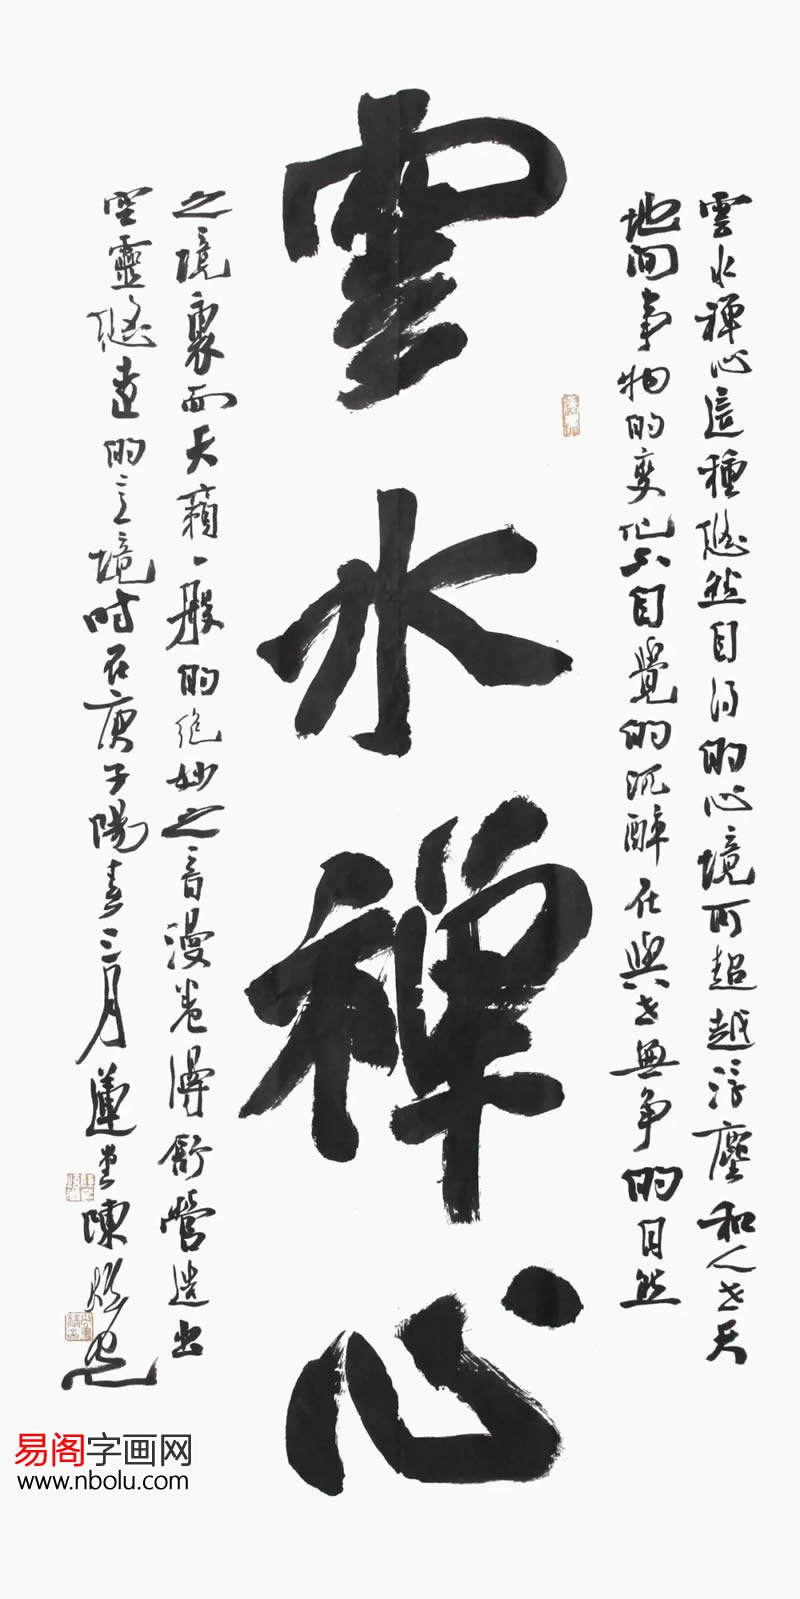 雲水禪心
雲水禪心這種悠然自得的心境可超越浮塵和人世天
地間事物的變化不自覺的沉醉在與世無争的自然
之境裏而天籟一般的绝妙之音漫卷漫舒營造出
空靈悠遠的意境時在庚子陽春三月蓮堂陳
易阁字画网
www.nbolu.com